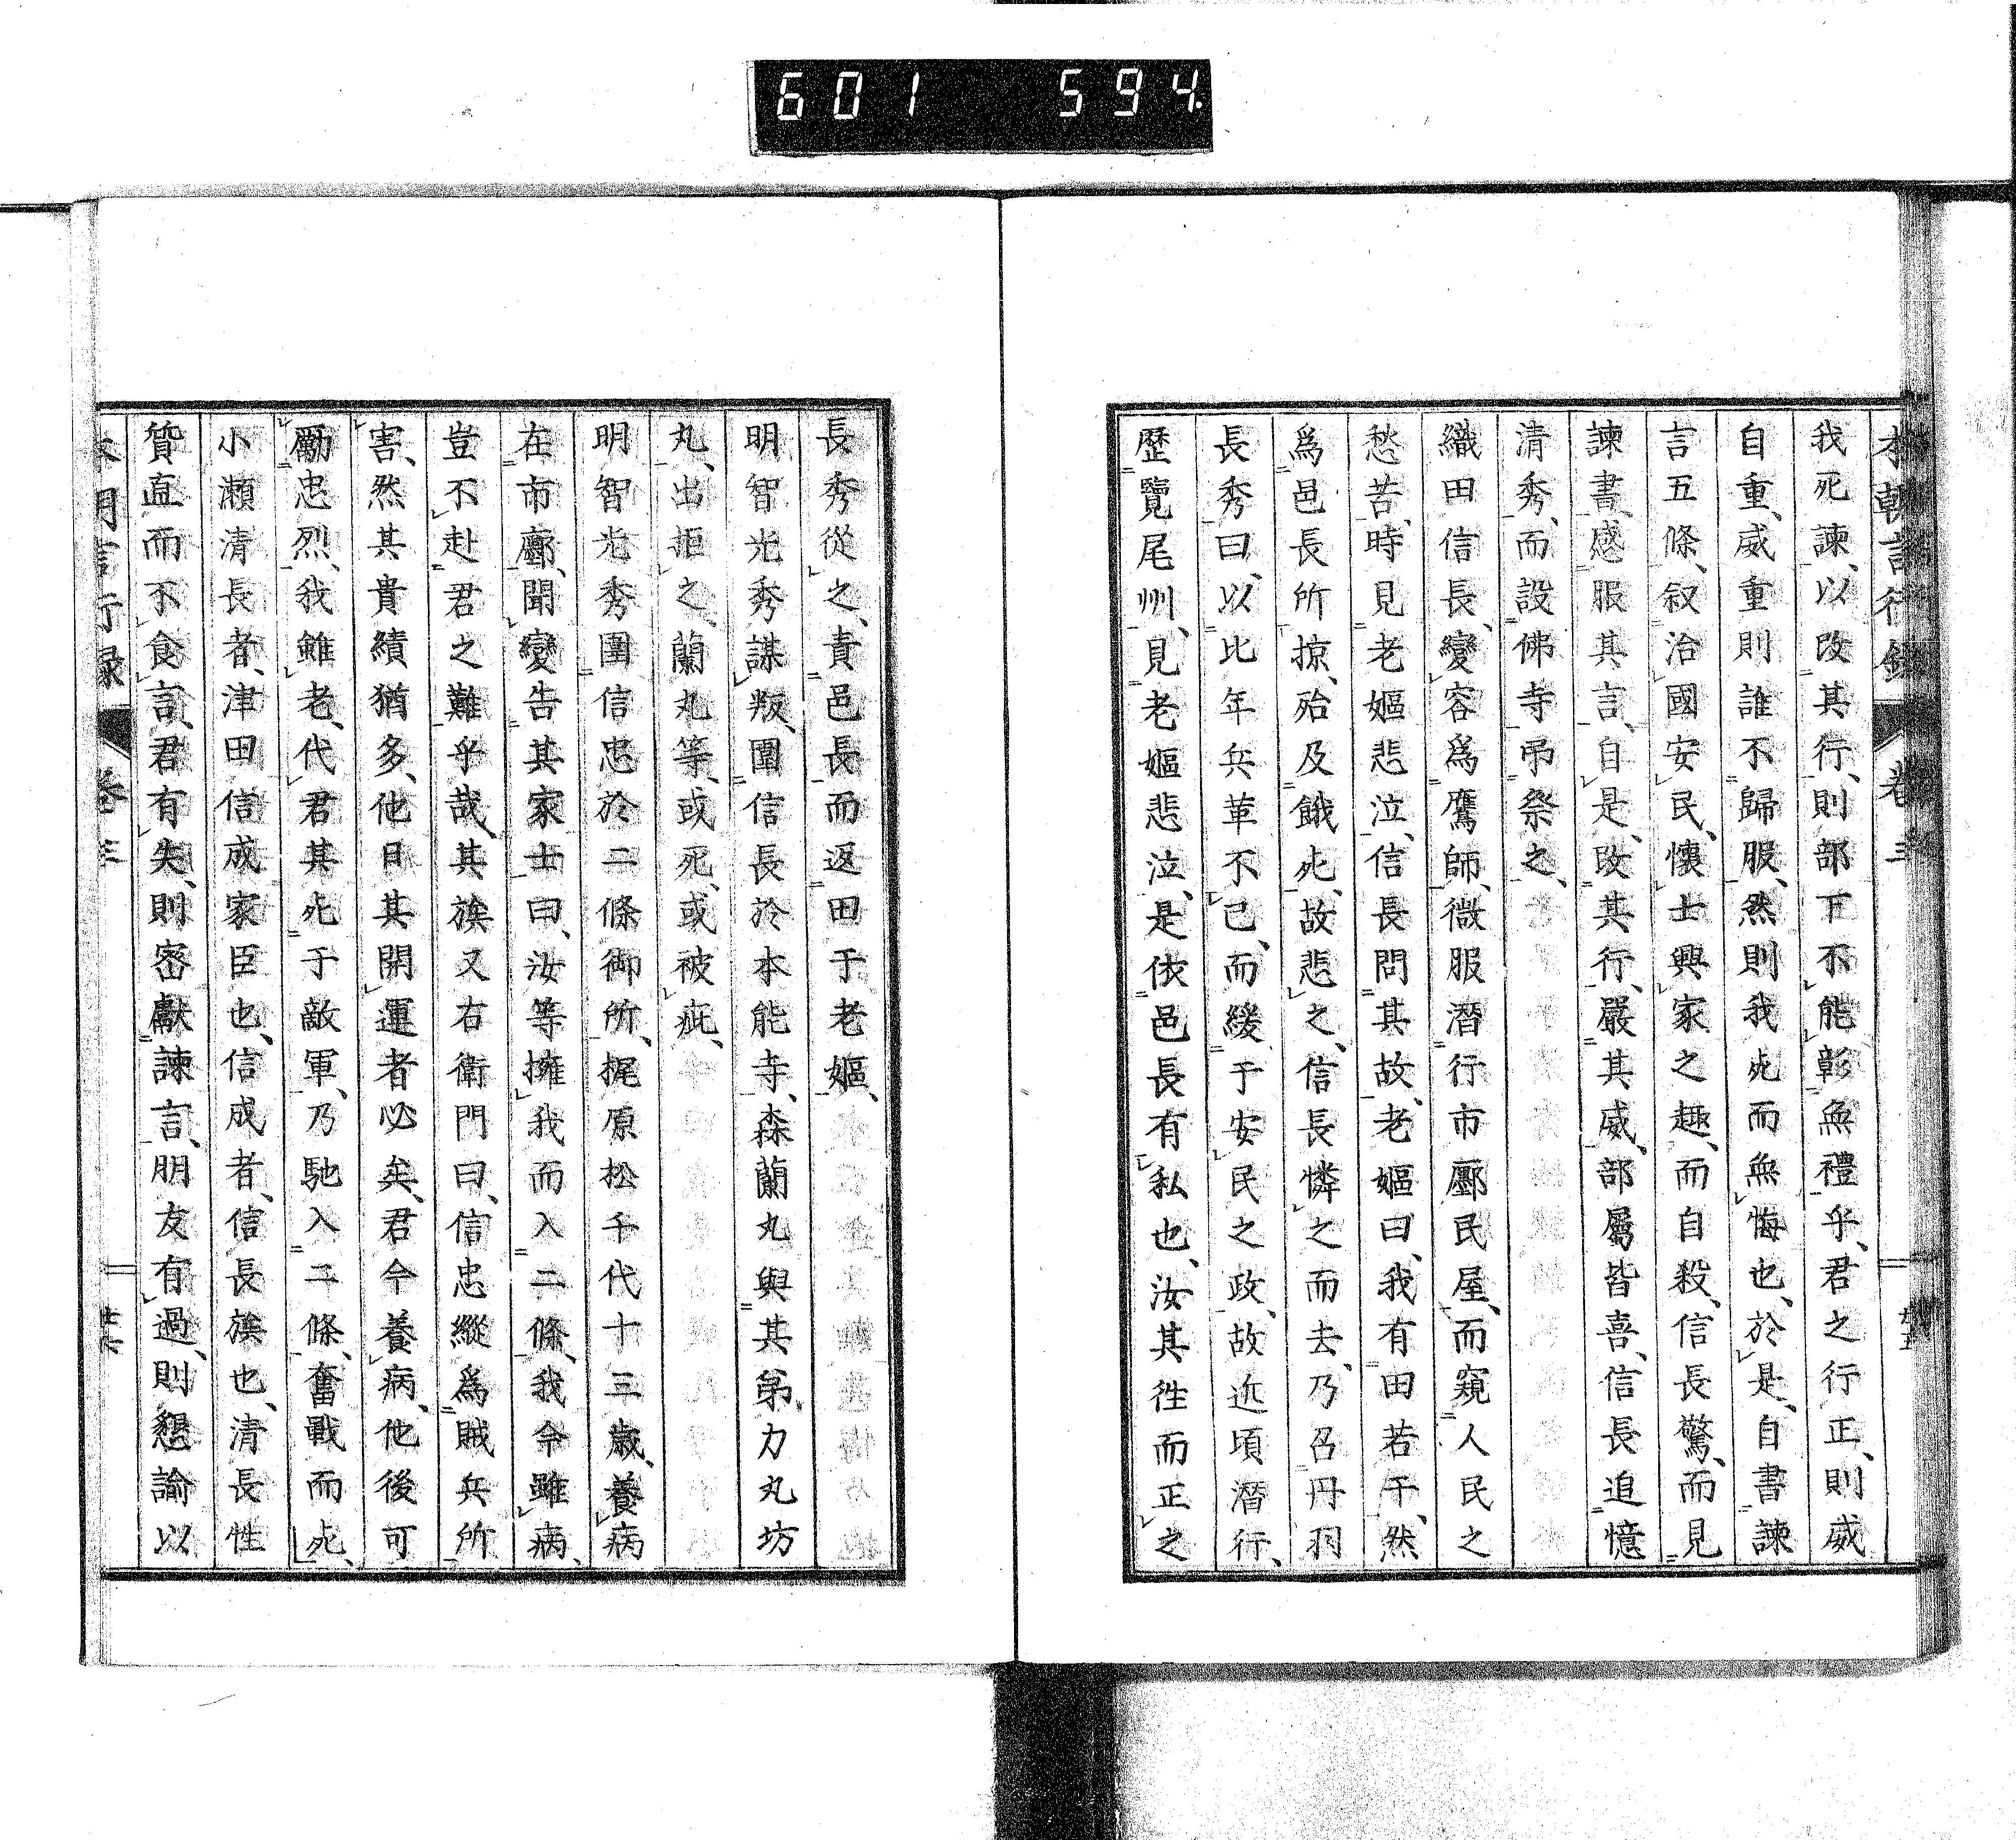 601 594
本朝言行錄 卷三
我死諫、以改其行、則部下不能彰無禮乎、君之行正、則威
自重、威重則誰不歸服、然則我死而無悔也、於是、自書諫
言五條、叙治國安民、懷士興家之趣、而自殺、信長驚、而見
諫書、感服其言、自是、改其行、嚴其威、部屬皆喜、信長追憶
清秀、而設佛寺、吊祭之、
織田信長、變容爲鷹師、微服潛行市鄽民屋、而窺人民之
愁苦、時見老嫗悲泣、信長問其故、老嫗曰、我有田若干、然
爲邑長所掠、殆及餓死、故悲之、信長憐之而去、乃召丹羽
長秀曰、以比年兵革不已、而緩于安民之政、故近頃潛行、
歷覽尾州、見老嫗悲泣、是依邑長有私也、汝其徃而正之
長秀從之、責邑長而返田于老嫗、
明智光秀謀叛、圍信長於本能寺、森蘭丸與其弟力丸坊
丸、出拒之、蘭丸等、或死、或被疵、
明智光秀圍信忠於二條御所、梶原松千代十三歲、養病
在市鄽、聞變告其家士曰、汝等擁我而入二條、我今雖病、
豈不赴君之難乎哉、其族又右衛門曰、信忠縱爲賊兵所
害、然其貴績猶多、他日其開運者必矣、君今養病、他後可
勵忠烈、我雖老、代君其死于敵軍、乃馳入二條、奮戰而死、
小瀬清長者、津田信成家臣也、信成者、信長族也、清長性
質直而不食言、君有失、則密獻諫言、朋友有過、則懇諭以
本朝言行錄 卷三